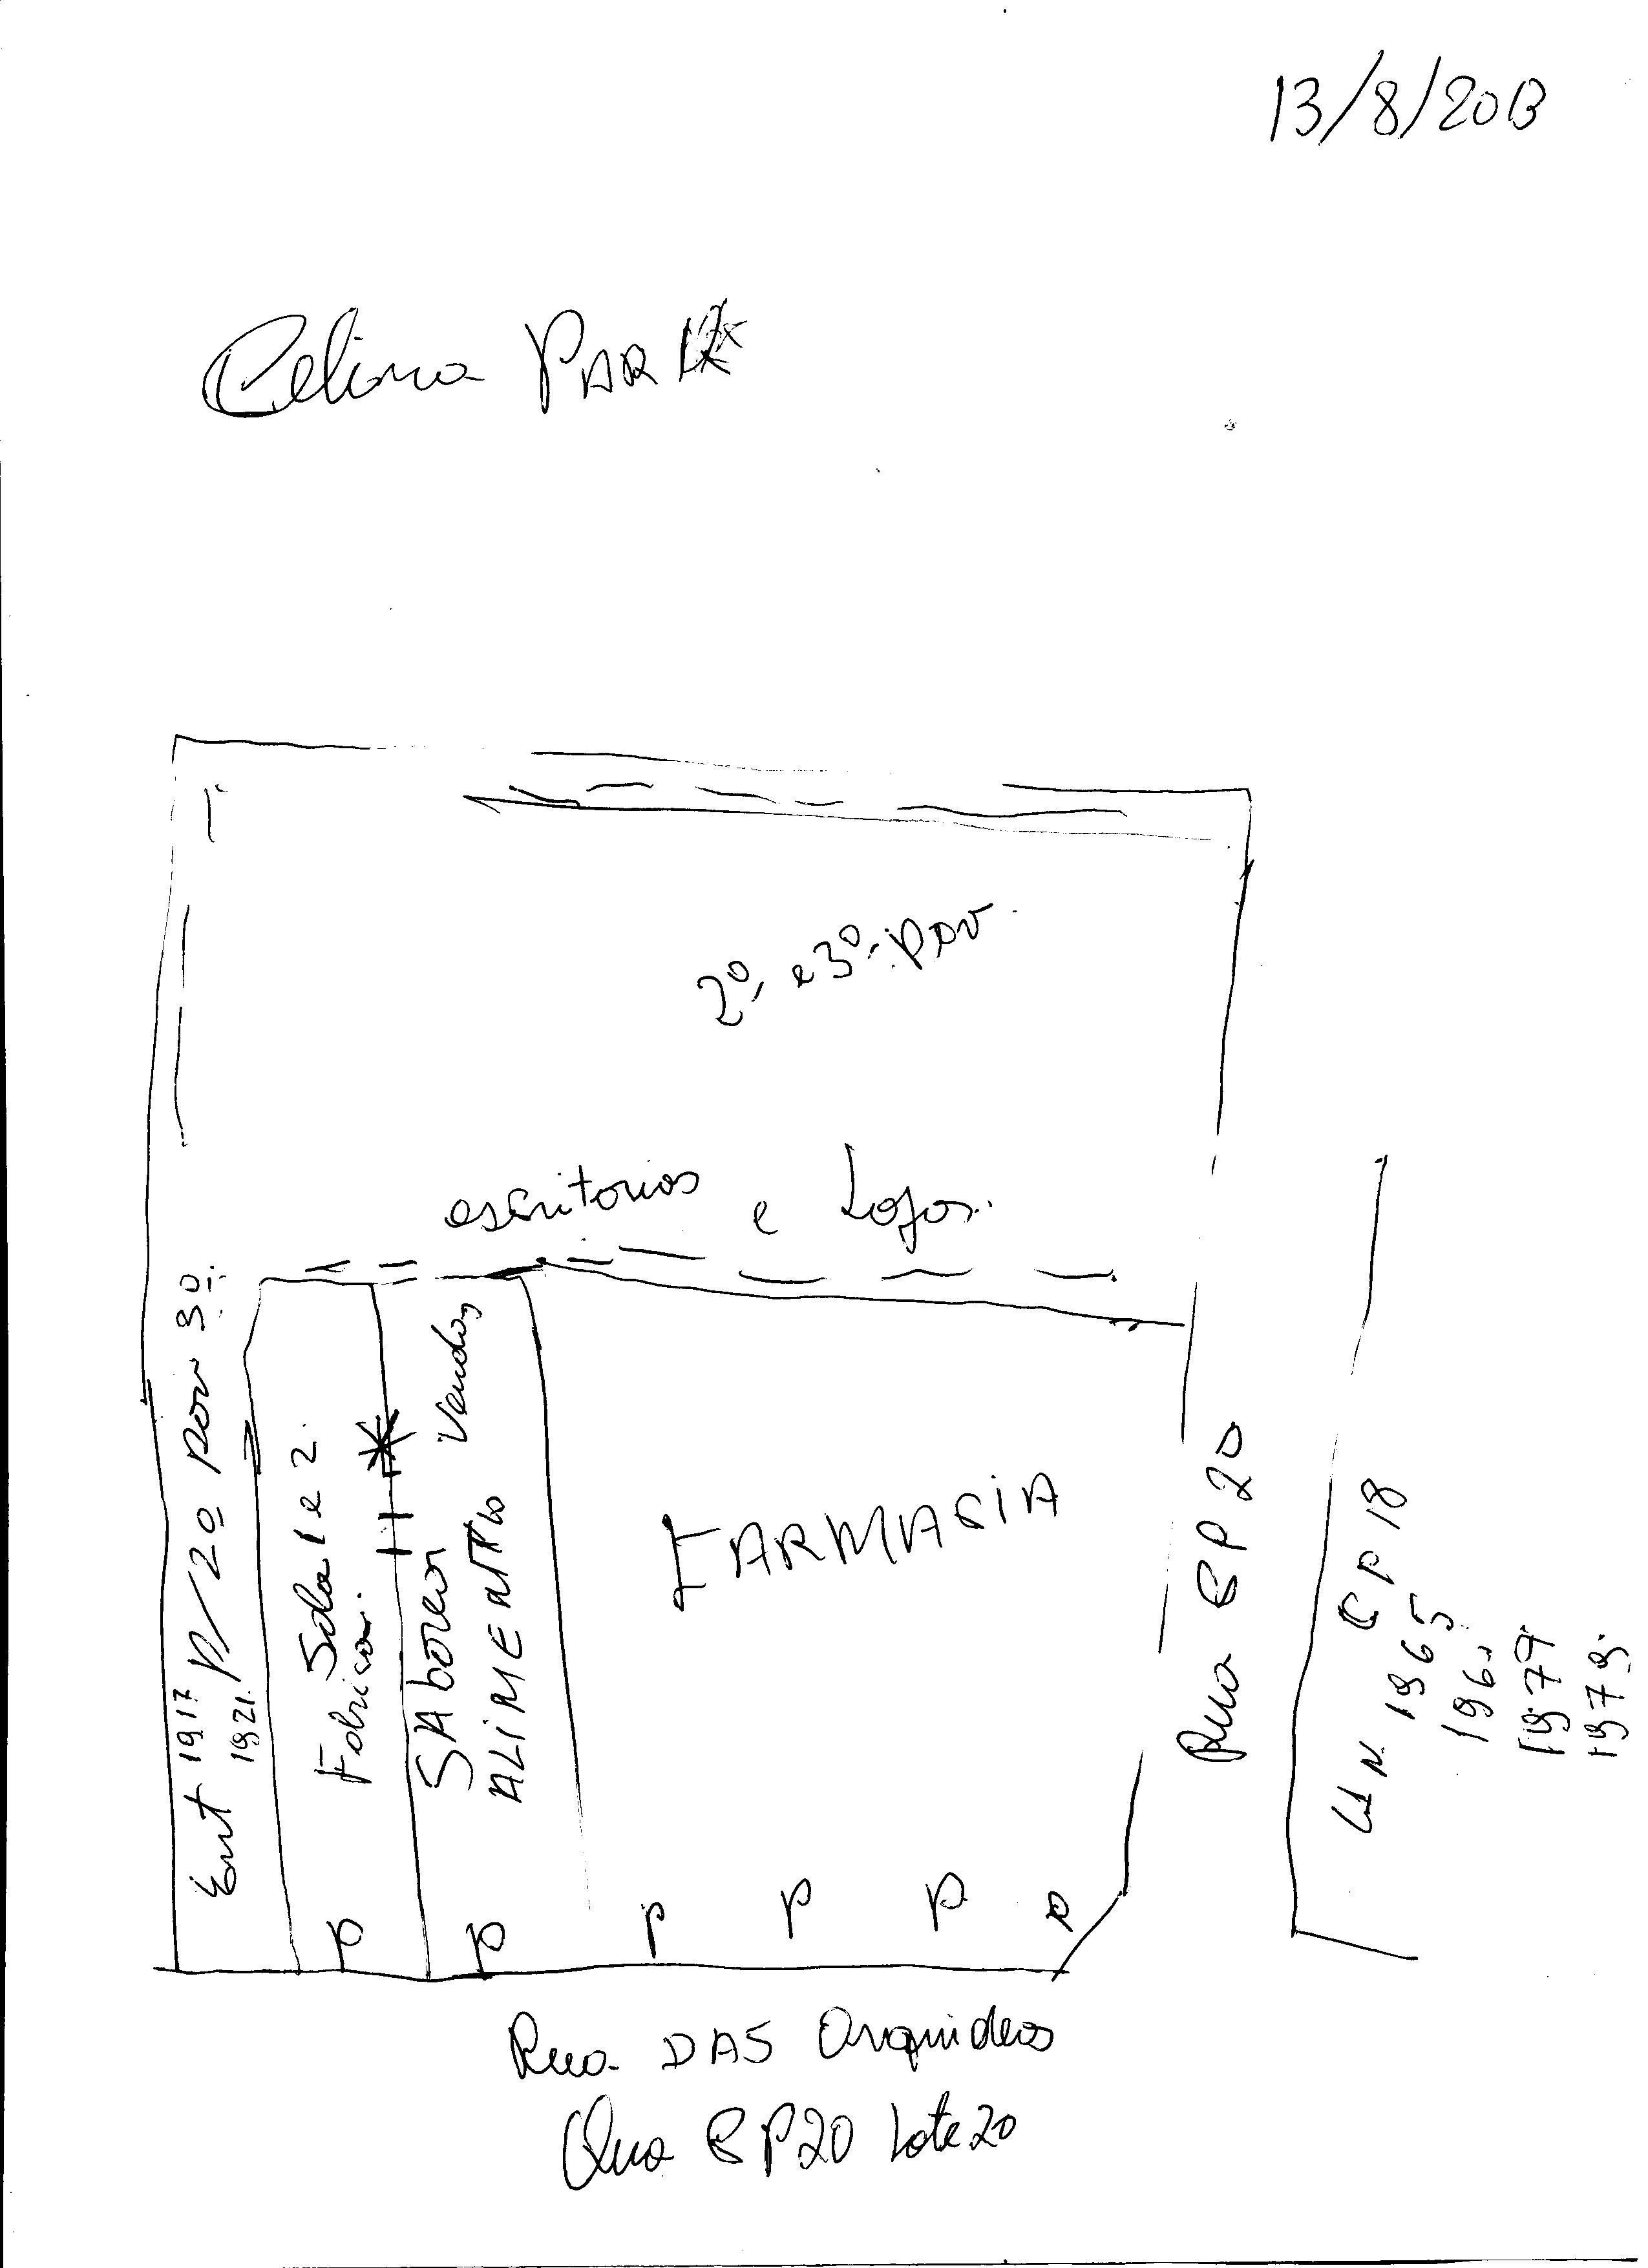 13/8/2013
Celina PARK
2º e 3º pav.
escritorios e Lojas.
Ent 1917 p/ 2º pav 3º.
1921.
Sala 1 e 2.
Fabrica.
SAbores Vendas
ALIMENTOS
FARMACIA
P P P P P P
Rua CP 20
CP 18
1965
1977
1979.
Rua DAS Orquideas
Qua CP20 Lote 20